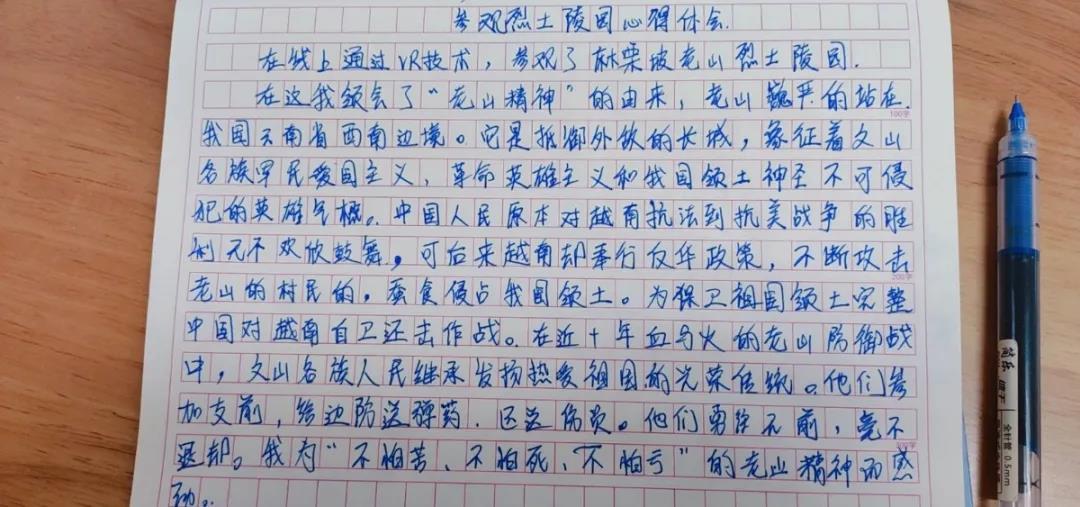 参观烈士陵园心得体会.
在线上通过VR技术，参观了麻栗坡老山烈士陵园.
在这我领会了“老山精神”的由来，老山巍严的站在
100字
我国云南省西南边境。它是抵御外敌的长城，象征着文山
各族军民爱国主义、革命英雄主义和我国领土神圣不可侵
犯的英雄气概。中国人民原本对越南抗法到抗美战争的胜
利无不欢欣鼓舞。可后来越南却奉行反华政策，不断攻击
200字
老山的村民的，蚕食侵占我国领土。为保卫祖国领土完整
中国对越南自卫还击作战。在近十年血与火的老山防御战
中，文山各族人民继承发扬热爱祖国的光荣传统。他们参
加支前，给边防送弹药、还送伤员。他们勇往无前，毫不
300字
退却。我为“不怕苦、不怕死、不怕亏”的老山精神而感
动。
简乐
全针管 0.5mm